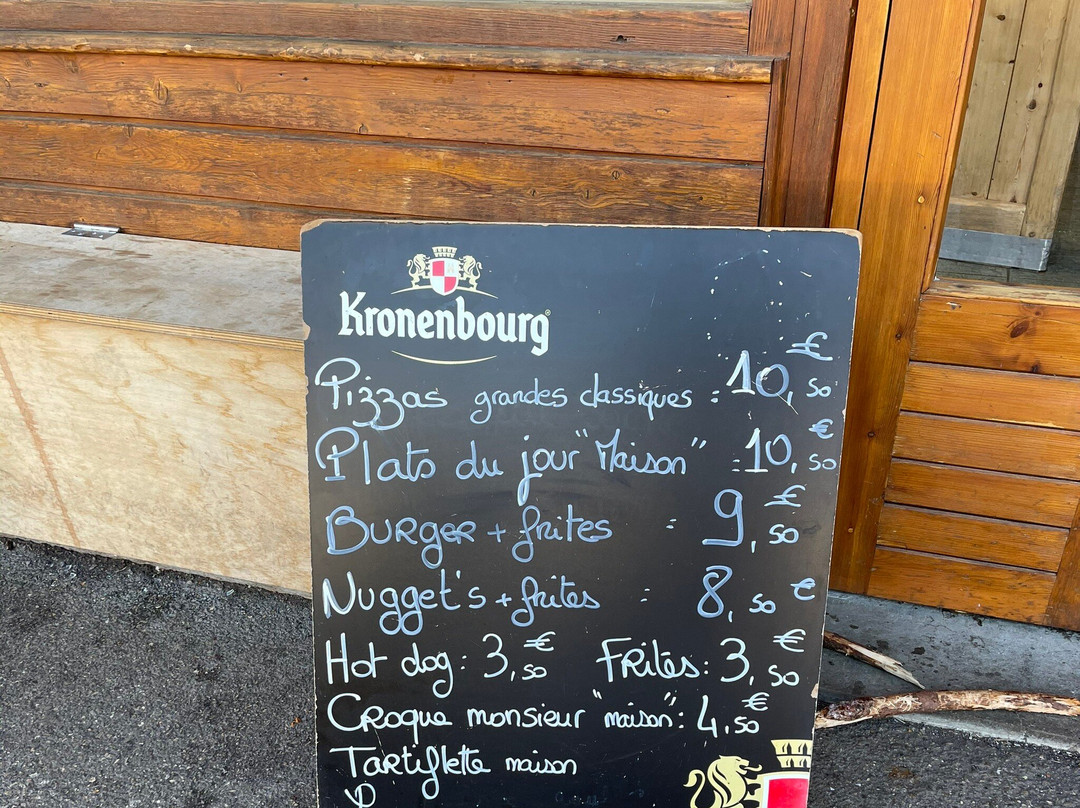 Kronenbourg
Pizzas grandes classiques : 10,50 €
Plats du jour "Maison" : 10,50 €
Burger + frites : 9,50 €
Nugget's + frites : 8,50 €
Hot dog : 3,50 € Frites : 3,50 €
Croque monsieur "maison" : 4,50 €
Tartiflette maison